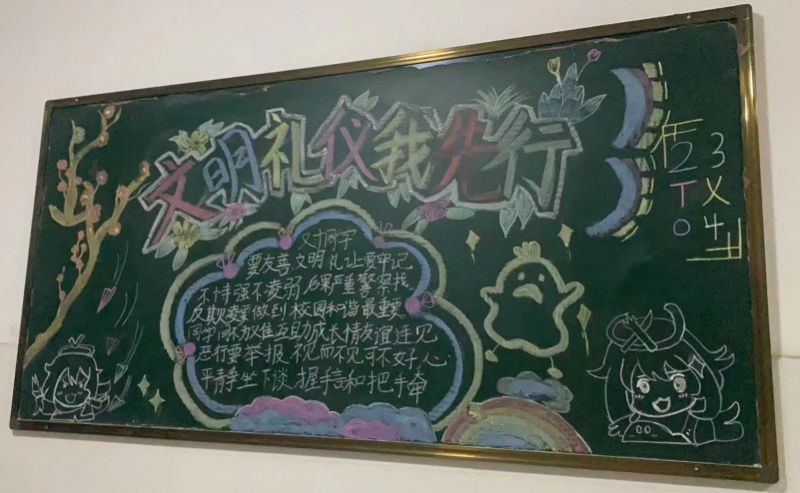 文明礼仪我先行
对同学
要友善文明礼让要牢记
不恃强不凌弱后果严重警察找
反欺凌要做到校园和谐最重要
同学间权住互助成长情友谊连见
恶行要举报视而不见可不好心
平静坐下谈握手言和把手牵
2 3
T X
0 4